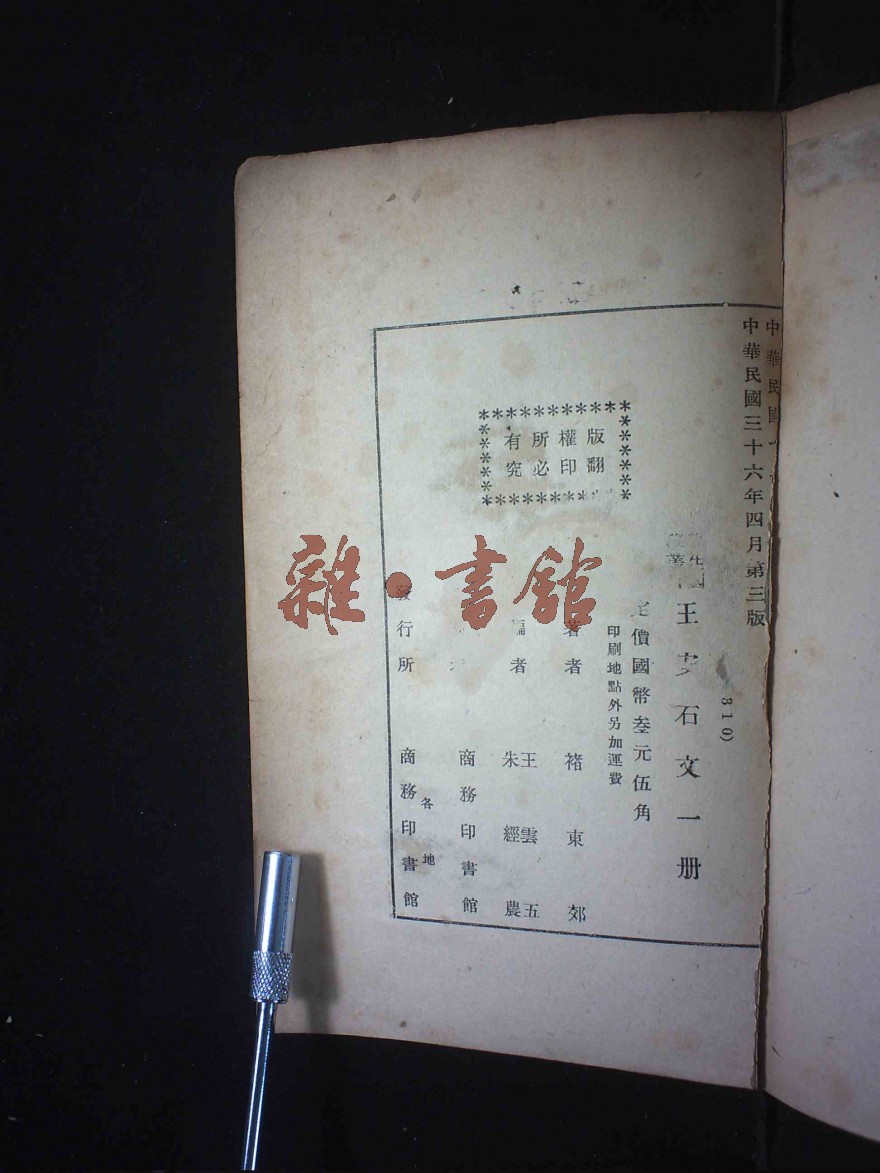 中華民國
中華民國三十六年四月第三版
310)
王安石文一册
定價國幣叁元伍角
印刷地點外另加運費
版權所有
翻印必究
著者 褚東郊
編者 王雲五
朱經農
商務印書館
各地
發行所 商務印書館
雜·書館